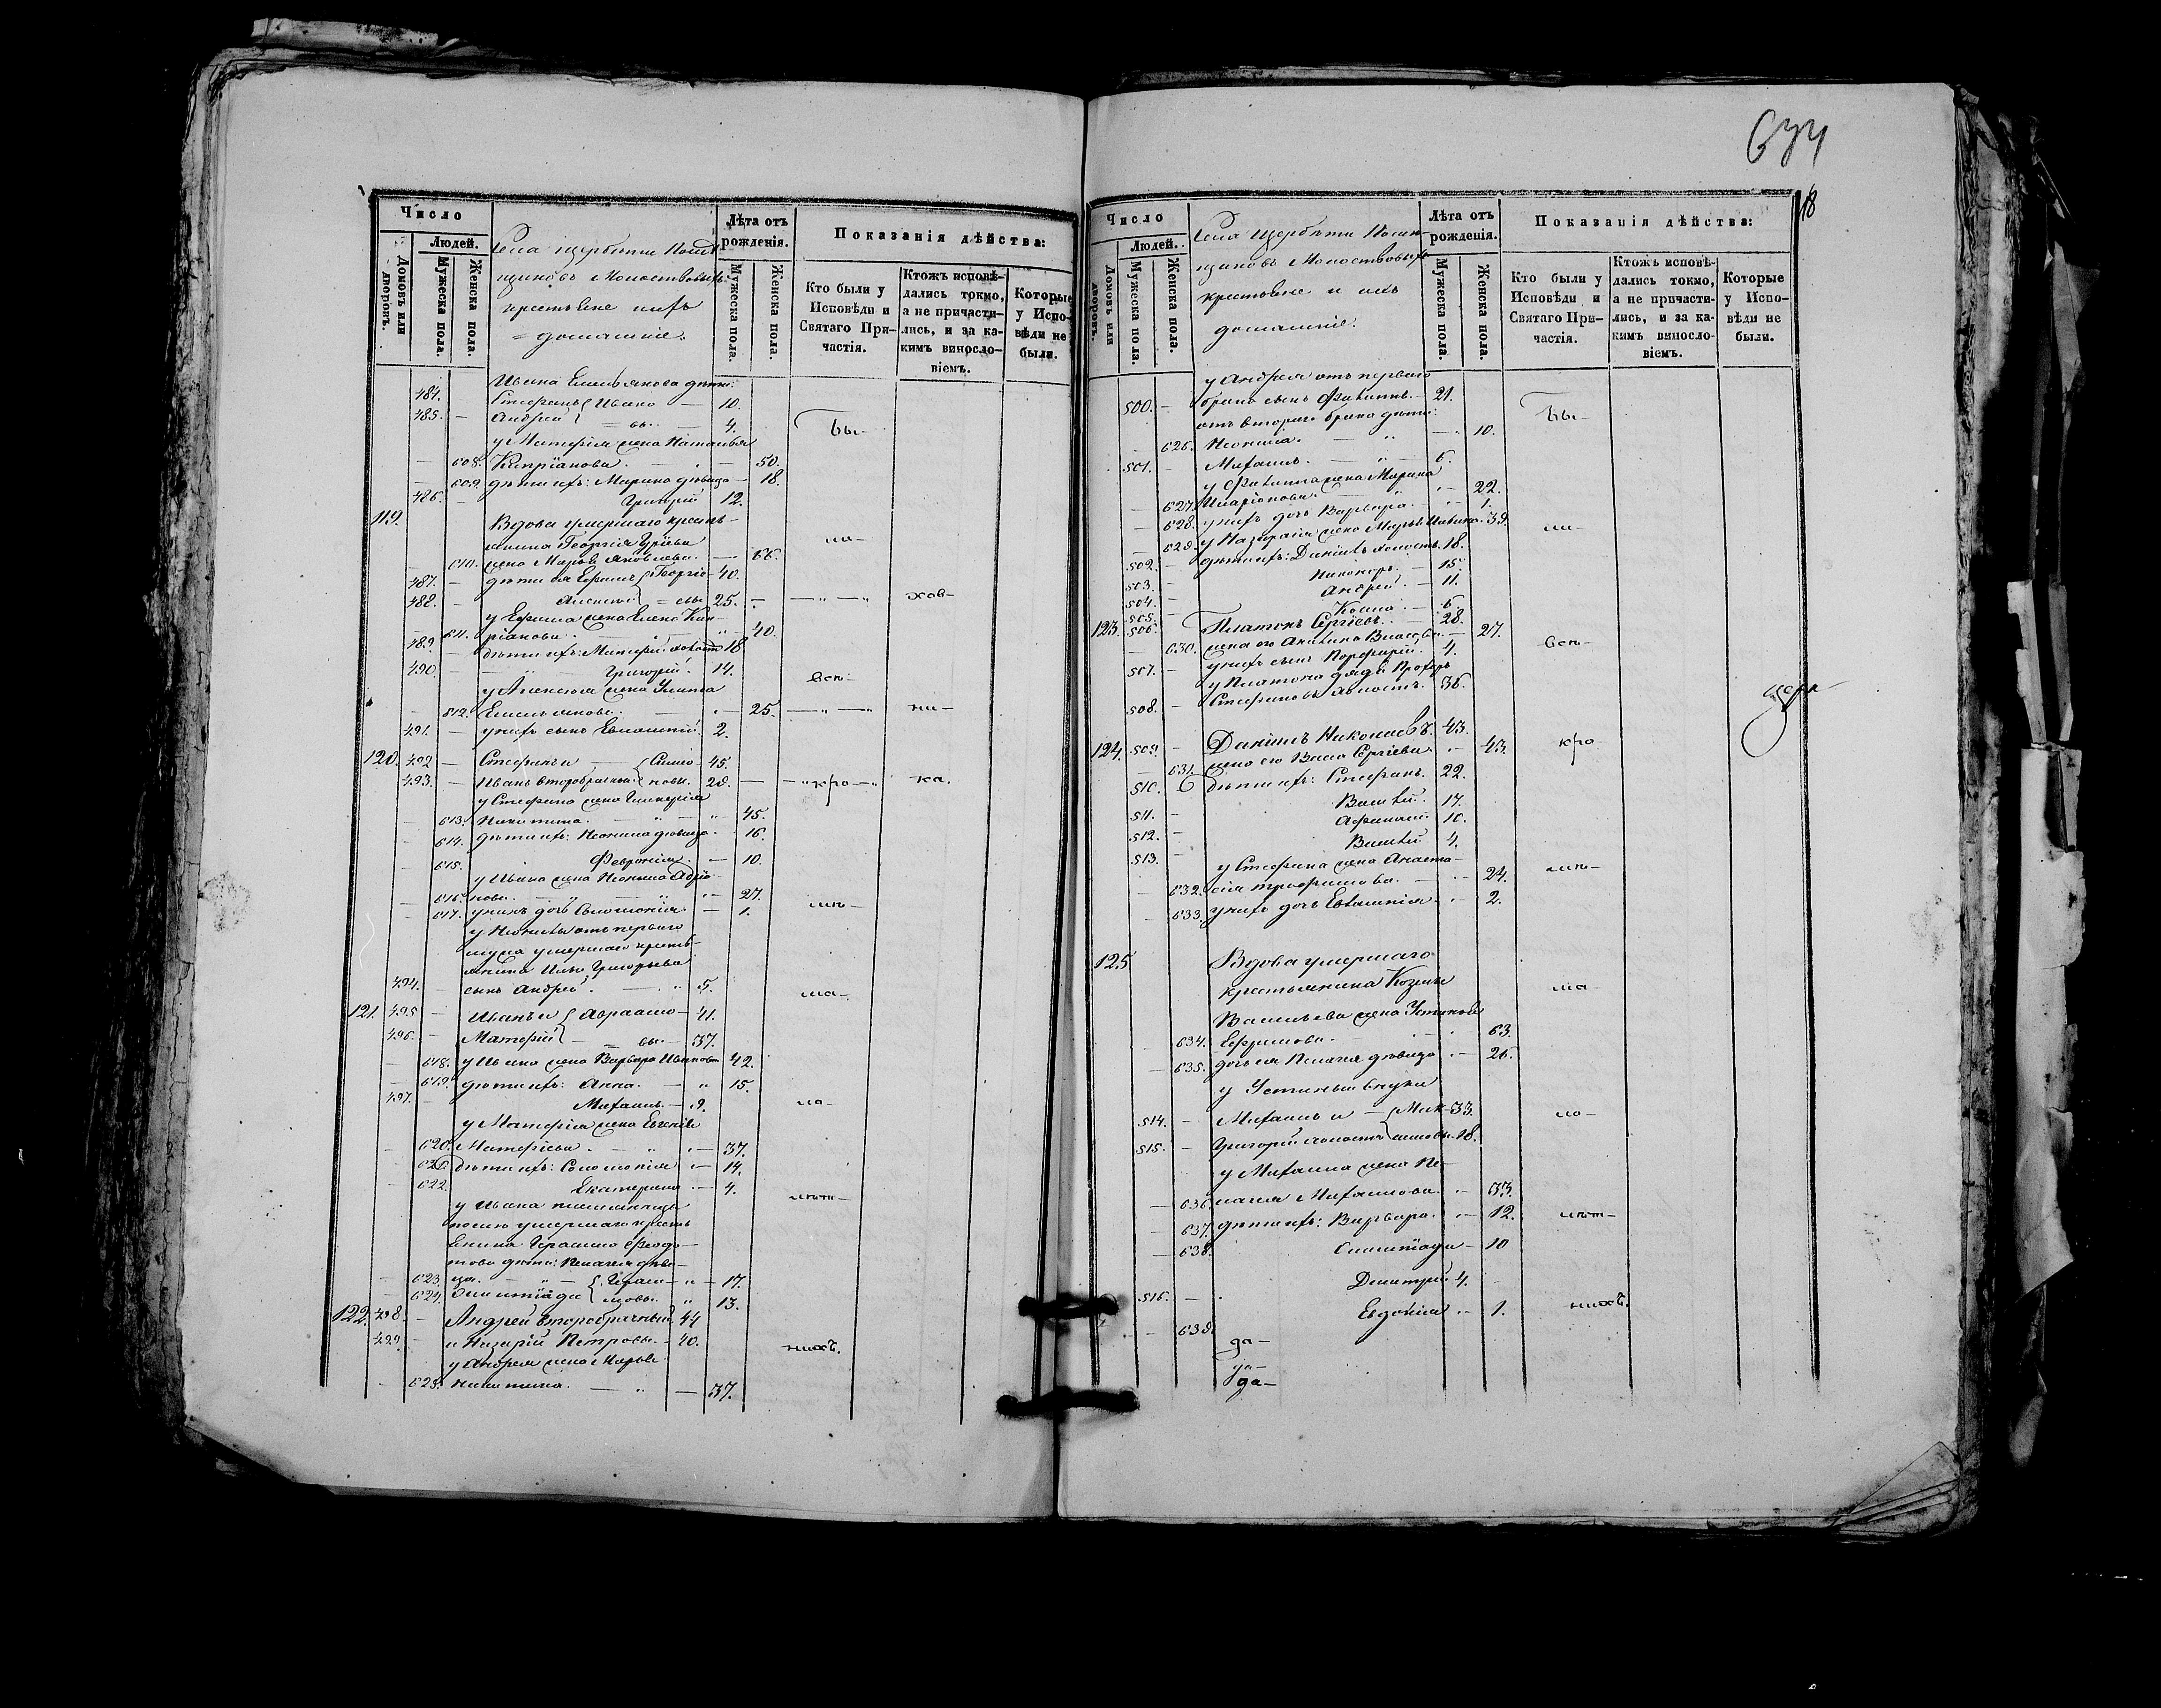 674
18
Число
Людей.
Домовъ или дворовъ.
Мужеска пола.
Женска пола.
Села Щербети Помѣ-
щиковъ Молоствовыхъ
крестьяне ихъ
= домашніе.
Лѣта отъ рожденія.
Мужеска пола.
Женска пола.
Показанія дѣйства:
Кто были у Исповѣди и Святаго При-частія.
Ктожъ исповѣ-дались токмо, а не причасти-лись, и за ка-кимъ винословіемъ.
Которые у Испо-вѣди не были.
Ивана Емельянова дѣти:
484. Стефанъ { Ивано — 10.
485. — Андрей { = вы. — 4. Бы-
у Матфея жена Наталья
— 608. Кипріанова. — 50.
— 609. дѣти ихъ: Марина дѣвица — 18.
486. — Григорій 12.
119. Вдова умершаго кресть-
янина Георгія Гуріева ли-
610. жена Марья Яковлева. — 66.
487. — дѣти ея Ефимъ { Георгіе- 40.
488. — Алексѣй { = вы 25. — „ — „ ков-
у Ефима жена Елена Кип-
— 611. ріанова. — „ — 40.
489. — дѣти ихъ: Матфей холостъ 18.
490. — „ — Григорій. — 14.
у Алексѣя жена Улита всѣ-
— 612. Емельянова. — 25. — „ — „ ни-
491. — у нихъ сынъ Евлампій. 2.
120. 492 — Стефанъ и { Симо- 45.
493. — Иванъ второбрачный { новы. 28. — „ кро — „ ка.
у Стефана жена Гликерія
— 613. Никитина. — „ — 45.
— 614. дѣти ихъ: Неонила дѣвица. — 16.
— 615. Февронія. — 10.
у Ивана жена Неонила Андрія-
— 616. нова. — „ — 27.
— 617. у нихъ дочь Соломонія. — 1. мѣ-
у Неонилы отъ перваго
мужа умершаго кресть-
янина Ильи Григорьева
494. — сынъ Андрей. — „ 5. ма-
121. 495 — Иванъ и { Авраамо- 41.
496. — Матфей { — = вы. — 37.
— 618. у Ивана жена Варвара Иванова 42.
— 619. дѣти ихъ: Анна. — „ 15.
497. — Михаилъ. — 9. ло-
у Матфея жена Евгенія
— 620. Матфеева. — „ — 37.
— 621. дѣти ихъ: Соломонія „ — 14.
— 622. Екатерина — 4. лѣт-
у Ивана племянницы
умершаго кресть-
янина Герасима Ѳеодо-
това дѣти: Пелагея дѣви-
— 623. ца. — „ — { Гераси- „ — 17.
— 624. Олимпіада { мовы. „ 13.
122. 498. — Андрей второбрачный. 44
499. — и Назарій Петровы. — 40. нихъ.
у Андрея жена Марья
— 625. Никитина. — „ — 37.
Число
Людей.
Домовъ или дворовъ.
Мужеска пола.
Женска пола.
Села Щербети Помѣ-
щиковъ Молоствовыхъ
крестьяне и ихъ
домашніе.
Лѣта отъ рожденія.
Мужеска пола.
Женска пола.
Показанія дѣйства:
Кто были у Исповѣди и Святаго При-частія.
Ктожъ исповѣ-дались токмо, а не причасти-лись, и за ка-кимъ винословіемъ.
Которые у Испо-вѣди не были.
у Андрея отъ перваго
500. — брака сынъ — 21. Бы-
отъ втораго брака дѣти:
— 626. Неонила. — „ — 10.
501. — Михаилъ. — „ — 6.
у жена Марина
— 627. Иларіонова. — „ — 22.
— 628. у нихъ дочь Варвара. — „ — 1.
— 629. у Назарія жена Марья Иванова. 39. ли-
502. — дѣти ихъ: Даніилъ холостъ. 18.
503. — Никаноръ. — 15.
504. — Андрей. — 11.
505. — Косма. — 6.
123. 506. Платонъ Сергѣевъ. — 28.
— 630. жена его Акилина Власова. — 27.
507. — у нихъ сынъ Порфирій. 4. всѣ-
у Платона дядя Прохоръ
508. — Стефановъ холостъ. 36. цер-
124. 509. — Даніилъ Николаевъ. 43. кро-
— 631. жена его Васса Сергѣева. „ 43.
510. — дѣти ихъ: Стефанъ. 22.
511. — Василій. 17.
512. — Афанасій. 10.
513. — Василій 4.
у Стефана жена Анаста- мѣ-
— 632. сія Трофимова. — 24.
— 633. у нихъ дочь Евлампія. „ 2.
125 Вдова умершаго
крестьянина Козмы ма-
Васильева жена Устинья
— 634. Ефимова. — 63.
— 635. дочь ея Пелагея дѣвица „ — 26.
у Устиньи внуки
514. — Михаилъ и — { Мак- 33. ло-
515. — Григорій холостъ { симовы. 18.
у Михаила жена Пе-
— 636. лагея Михаилова. „ — 33.
— 637. дѣти ихъ: Варвара. „ — 12. лѣт-
— 638. Олимпіада — 10
516. — Димитрій. 4.
— 639. Евдокія „ — 1. нихъ.
да-
да-